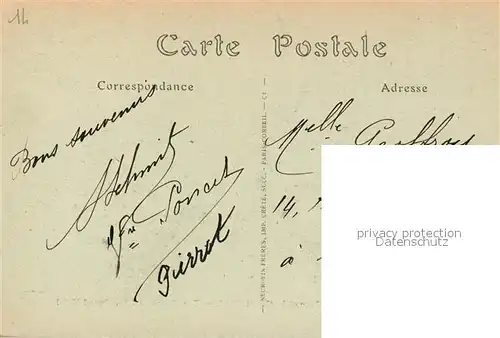 14
Carte Postale
Correspondance
Adresse
Bons souvenirs
Schmit
Poncet
Pierrot
NEURDEIN FRÈRES, IMP. CRÉTÉ, SUCC. - PARIS-CORBEIL - C1
Melle Geoffroy
14,
à
privacy protection
Datenschutz